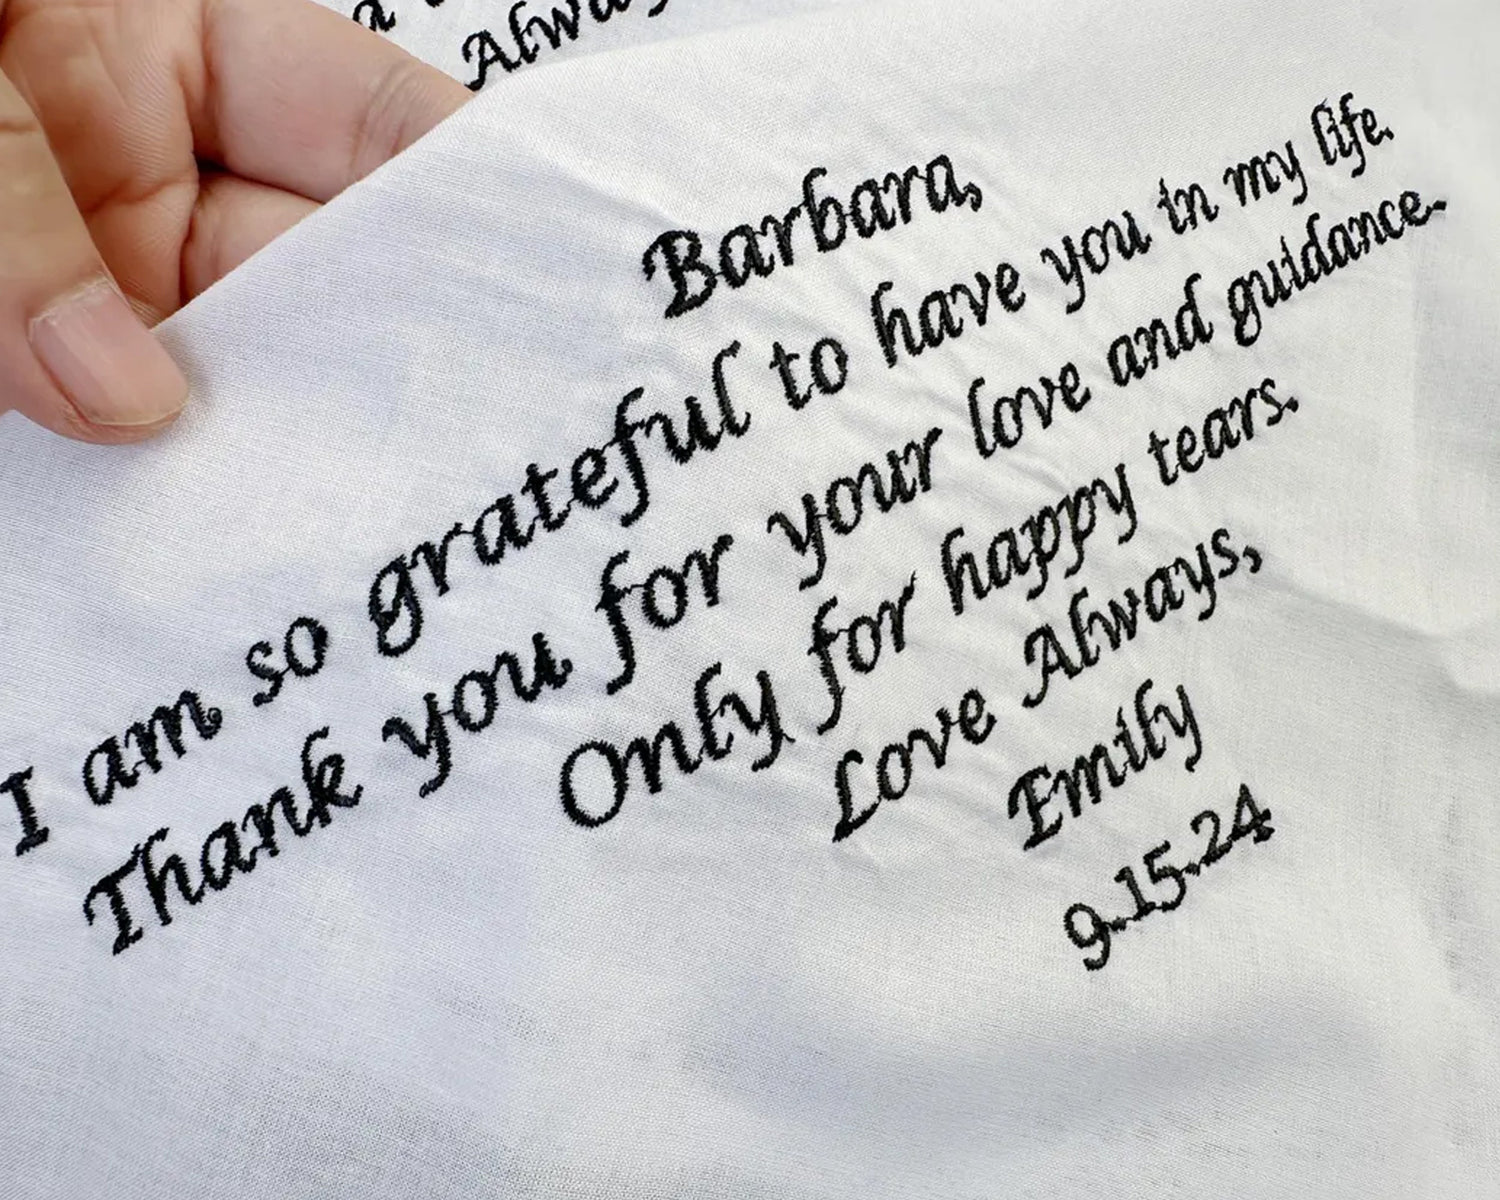 Alway
Barbara,
I am so grateful to have you in my life.
Thank you for your love and guidance.
Only for happy tears.
Love Always,
Emily
9.15.24